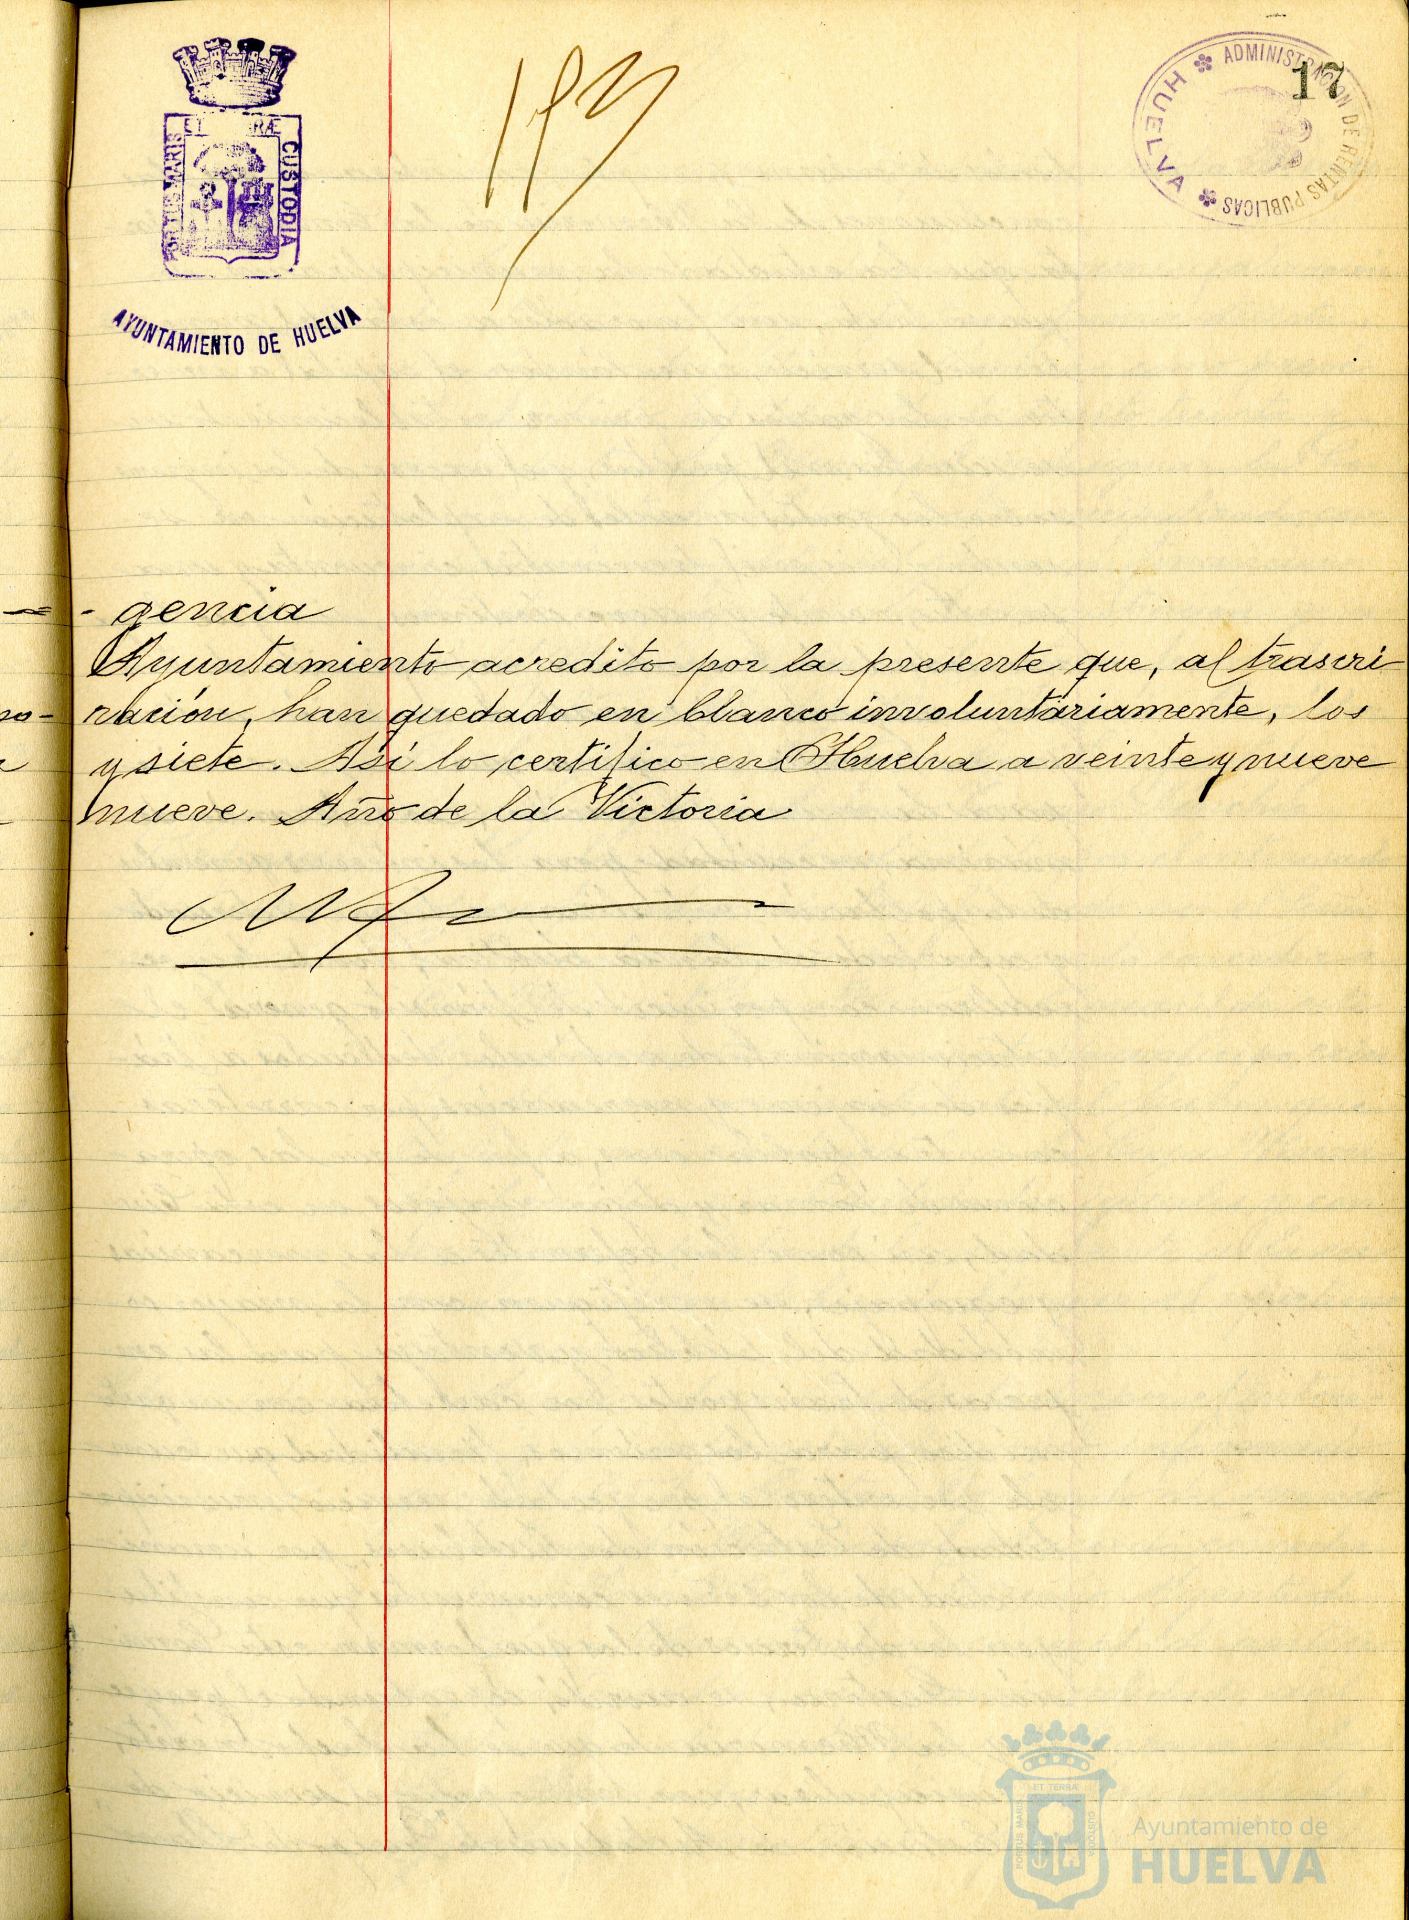 PORTUS MARIS ET TERRÆ CUSTODIA
AYUNTAMIENTO DE HUELVA
ADMINISTRACIÓN DE RENTAS PUBLICAS
HUELVA
17
- gencia
Ayuntamiento acredito por la presente que, al trascri
ración, han quedado en blanco involuntariamente, los
y siete. Así lo certifico en Huelva a veinte y nueve
nueve. Año de la Victoria
PORTUS MARIS ET TERRÆ CUSTODIA
Ayuntamiento de
HUELVA